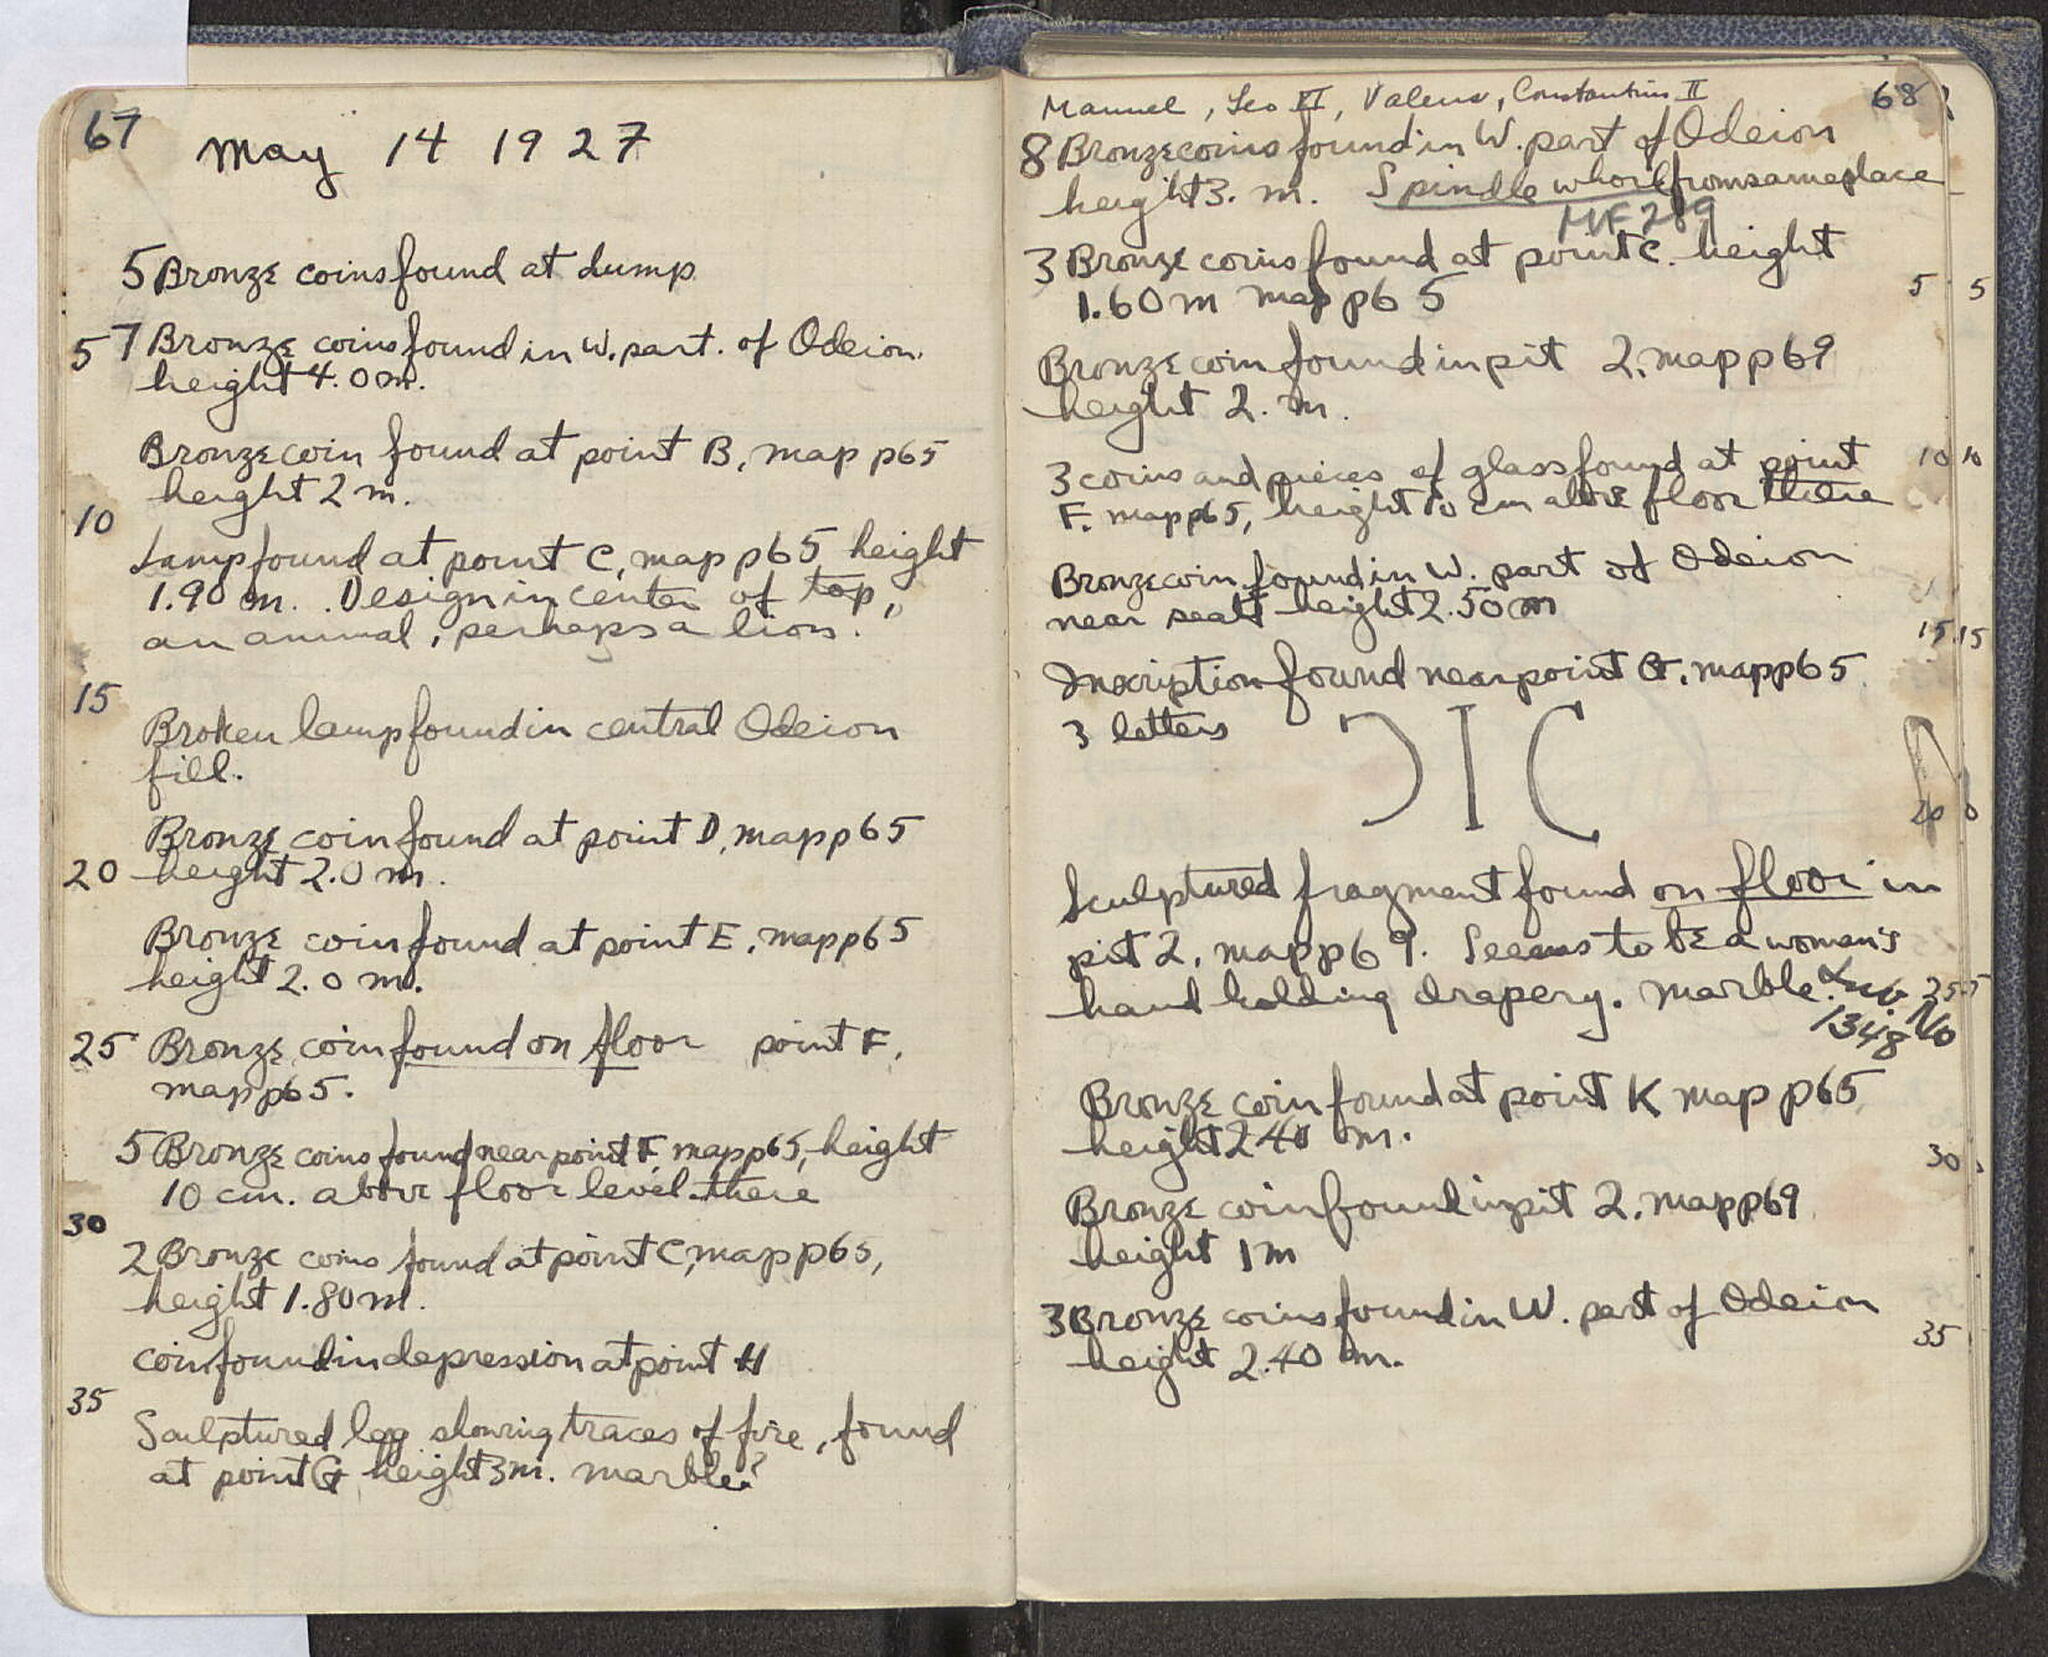 67
May 14 1927
5 Bronze coins found at dump
5 7 Bronze coins found in W. part. of Odeion.
height 4.0 m.
Bronze coin found at point B, map p65
height 2 m.
10
Lamp found at point C, map p65 height
1.90 m. Design in center of top,
an animal, perhaps a lion.
15
Broken lamp found in central Odeion
fill.
Bronze coin found at point D, map p65
20 height 2.0 m.
Bronze coin found at point E, map p65
height 2.0 m.
25 Bronze coin found on floor point F,
map p65.
5 Bronze coins found near point F, map p65, height
10 cm. above floor level there
30
2 Bronze coins found at point C, map p65,
height 1.80 m.
coin found in depression at point H
35
Sculptured leg showing traces of fire, found
at point G height 3 m. marble?
68
Manuel, Leo VI, Valens, Constantius II
8 Bronze coins found in W. part of Odeion
height 3. m. Spindle whorl from same place
MF 289
3 Bronze coins found at point C. height
1.60 m map p65
5 5
Bronze coin found in pit 2, map p69
height 2. m.
3 coins and pieces of glass found at point 10 10
F. map p65, height 10 cm above floor there
Bronze coin found in W. part of Odeion
near seat height 2.50 m
15 15
Inscription found near point G, map p65
3 letters
20
Sculptured fragment found on floor in
pit 2, map p69. Seems to be a woman's
hand holding drapery. Marble. Inv No 1348
25
Bronze coin found at point K map p65
height 2.40 m.
30
Bronze coin found in pit 2, map p69
height 1 m
3 Bronze coins found in W. part of Odeion
height 2.40 m.
35